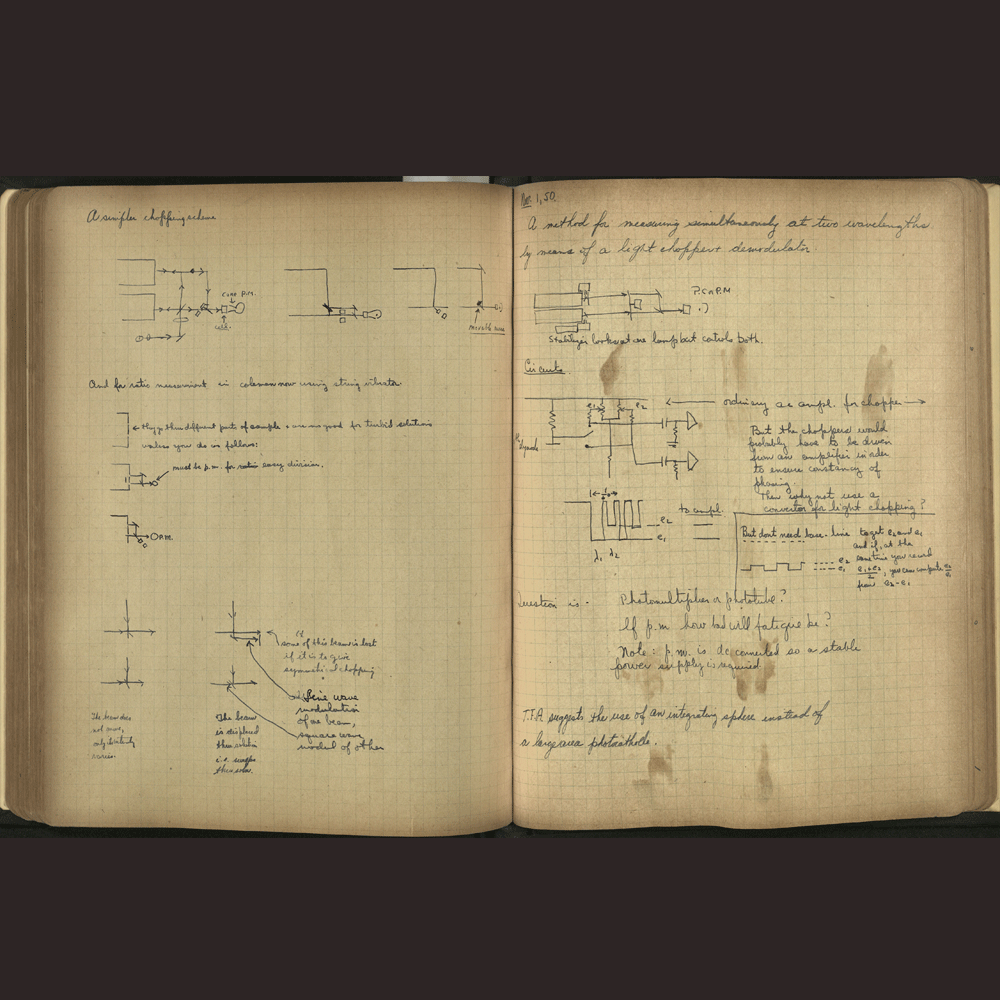 A simpler chopping scheme
P.M.
cell.
movable
And for ratic measurement in coleman now using string vibrator.
← thus different part of sample & are no good for turbid solutions
unless you do as follows:
must be p.m. for ratio easy division.
some of this beam is lost
if it is to give
symmetrical chopping
Sine wave
modulation
of one beam,
square wave
modul of other
The beam does
not move,
only intensity
varies.
The beam
is displaced
thru solution
i.e. sweeps
thru soln.
1, 50.
A method for measuring simultaneously at two wavelengths
by means of a light chopper + demodulator
P.C or P.M
Stabilizer looks at one lamp but controls both.
Circuits
e1 e2 ← ordinary ac ampl. for chopper →
But the choppers would
probably have to be driven
from an amplifier in order
to ensure constancy of
phasing.
Then why not use a
convertor for light chopping?
to ampl.
e2
e1
λ1 λ2
But dont need base-line to get e2 and e1
and if, at the
same time you record
e1+e2/2, you can compute e2/e1
from e2-e1
e2
e1
Question is - Photomultiplier or phototube?
If p.m how bad will fatigue be?
Note: p.m. is dc connected so a stable
power supply is required
T.F.A. suggests the use of an integrating sphere instead of
a large area photocathode.